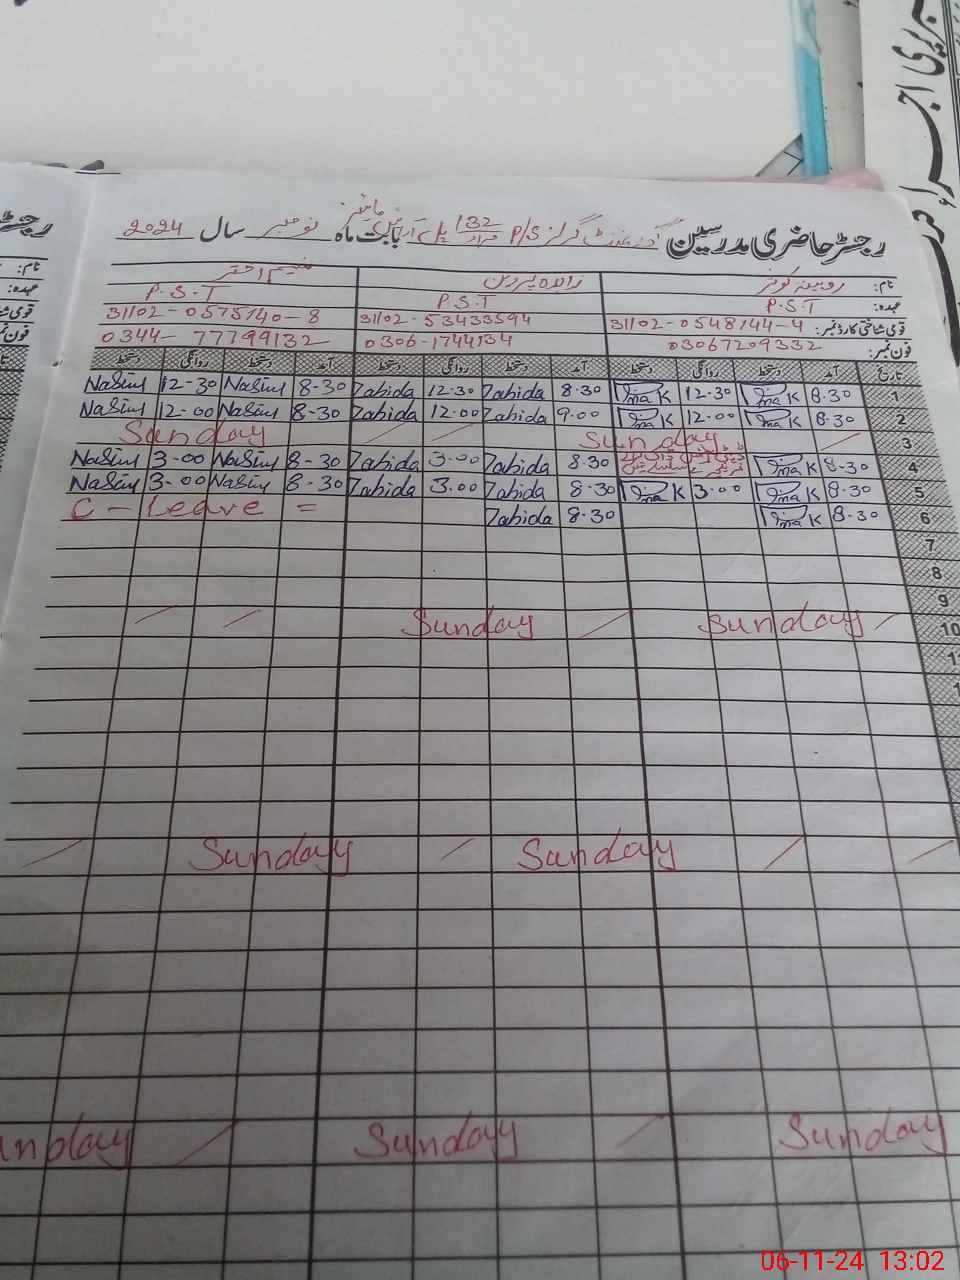 رجسٹر حاضری مدرسین گورنمنٹ گرلز P/S 132 مراد بابت ماہ نومبر سال 2024
نام: روبینہ کوثر زاہدہ پروین نسیم اختر
عہدہ: P.S.T P.S.T P.S.T
قومی شناختی کارڈ نمبر: 31102-0548144-4 31102-53433594 31102-0575140-8
فون نمبر: 03067209332 0306-1744134 0344-77799132
تاریخ آمد دستخط روانگی دستخط آمد دستخط روانگی دستخط آمد دستخط روانگی دستخط
1 8.30 K 12.30 K 8.30 Zabida 12.30 Zabida 8-30 Nasim 12-30 Nasim
2 8.30 K 12.00 K 9.00 Zabida 12.00 Zabida 8-30 Nasim 12-00 Nasim
3 Sunday Sunday
4 8-30 K 8.30 Zabida 3.00 Zabida 8-30 Nasim 3-00 Nasim
5 8.30 K 3.00 K 8.30 Zabida 3.00 Zabida 8-30 Nasim 3-00 Nasim
6 8.30 K 8.30 Zabida C - Leave =
7
8
9
10 Sunday Sunday
Sunday Sunday
Sunday Sunday
06-11-24 13:02